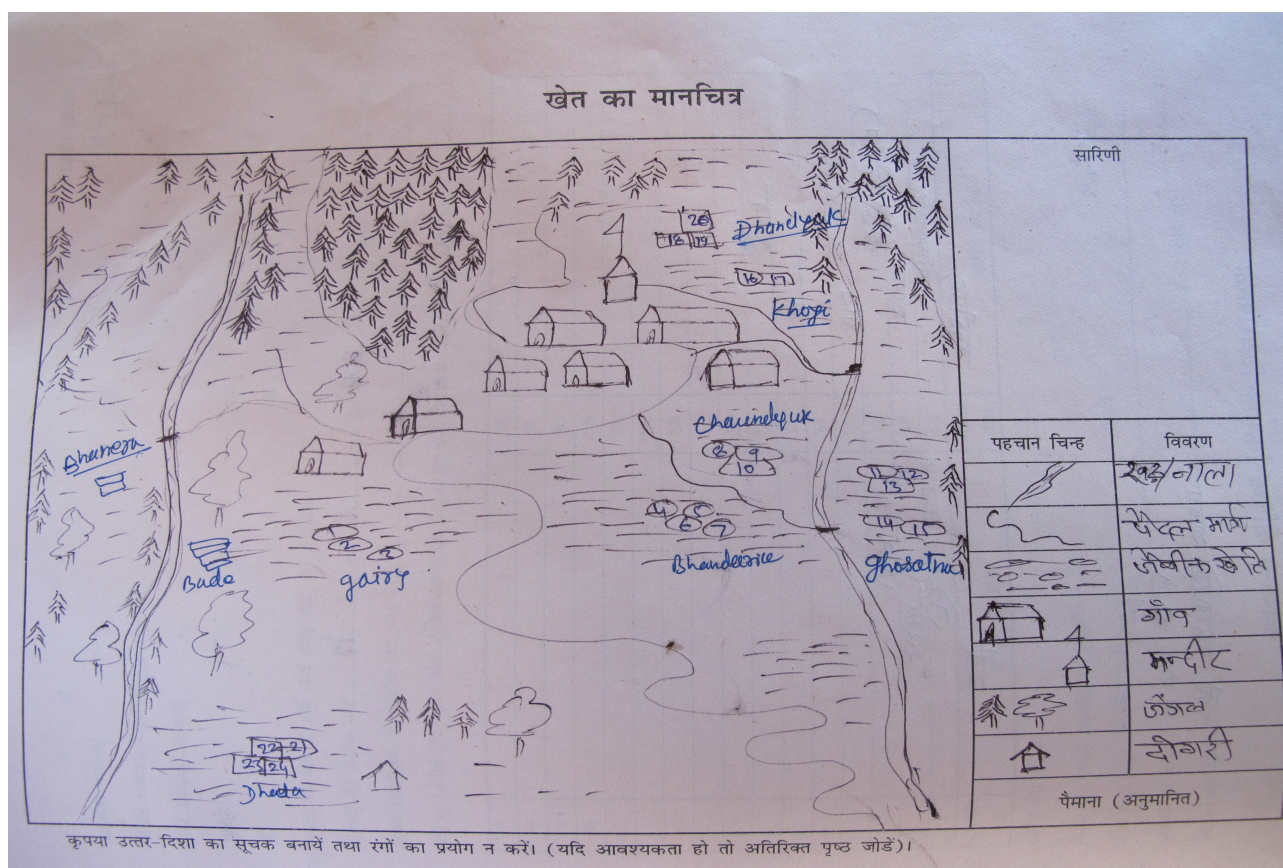 खेत का मानचित्र
सारिणी
20
18 19
Dhandyuk
16 17
Khogi
Chaindyuk
8 9
10
Bhanera
11 12
13
4 5
6 7
14 15
1
2 3
Bhandeerice
Ghosatna
Bude
gairy
22 21
23 24
Dhada
पहचान चिन्ह
विवरण
खड्ड/नाला
पैदल मार्ग
जैवीक खेति
गाँव
मन्दीर
जंगल
दोगरी
पैमाना (अनुमानित)
कृपया उत्तर-दिशा का सूचक बनायें तथा रंगों का प्रयोग न करें। (यदि आवश्यकता हो तो अतिरिक्त पृष्ठ जोडें)।